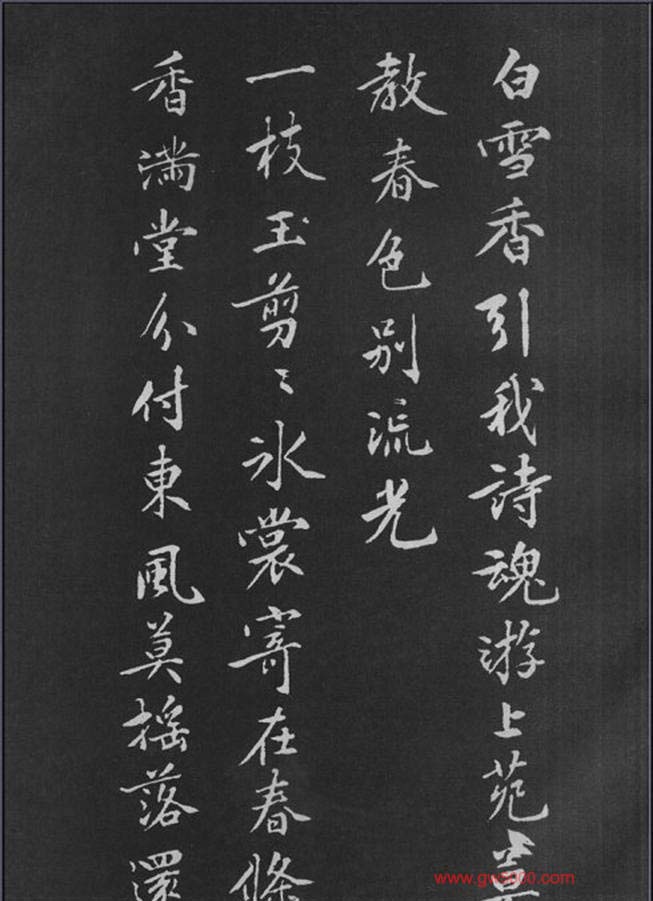 白雪香引我詩魂游上苑
教春色別流光
一枝玉剪〻冰裳寄在春條
香滿堂分付東風莫搖落還
www.gw8000.com